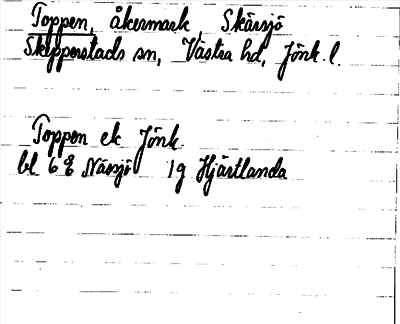 Toppen, åkermark, Skärsjö
Skepperstads sn, Västra hd, Jönk. l.
Toppen ek Jönk.
bl 6 E Nässjö 1g Hjärtlanda